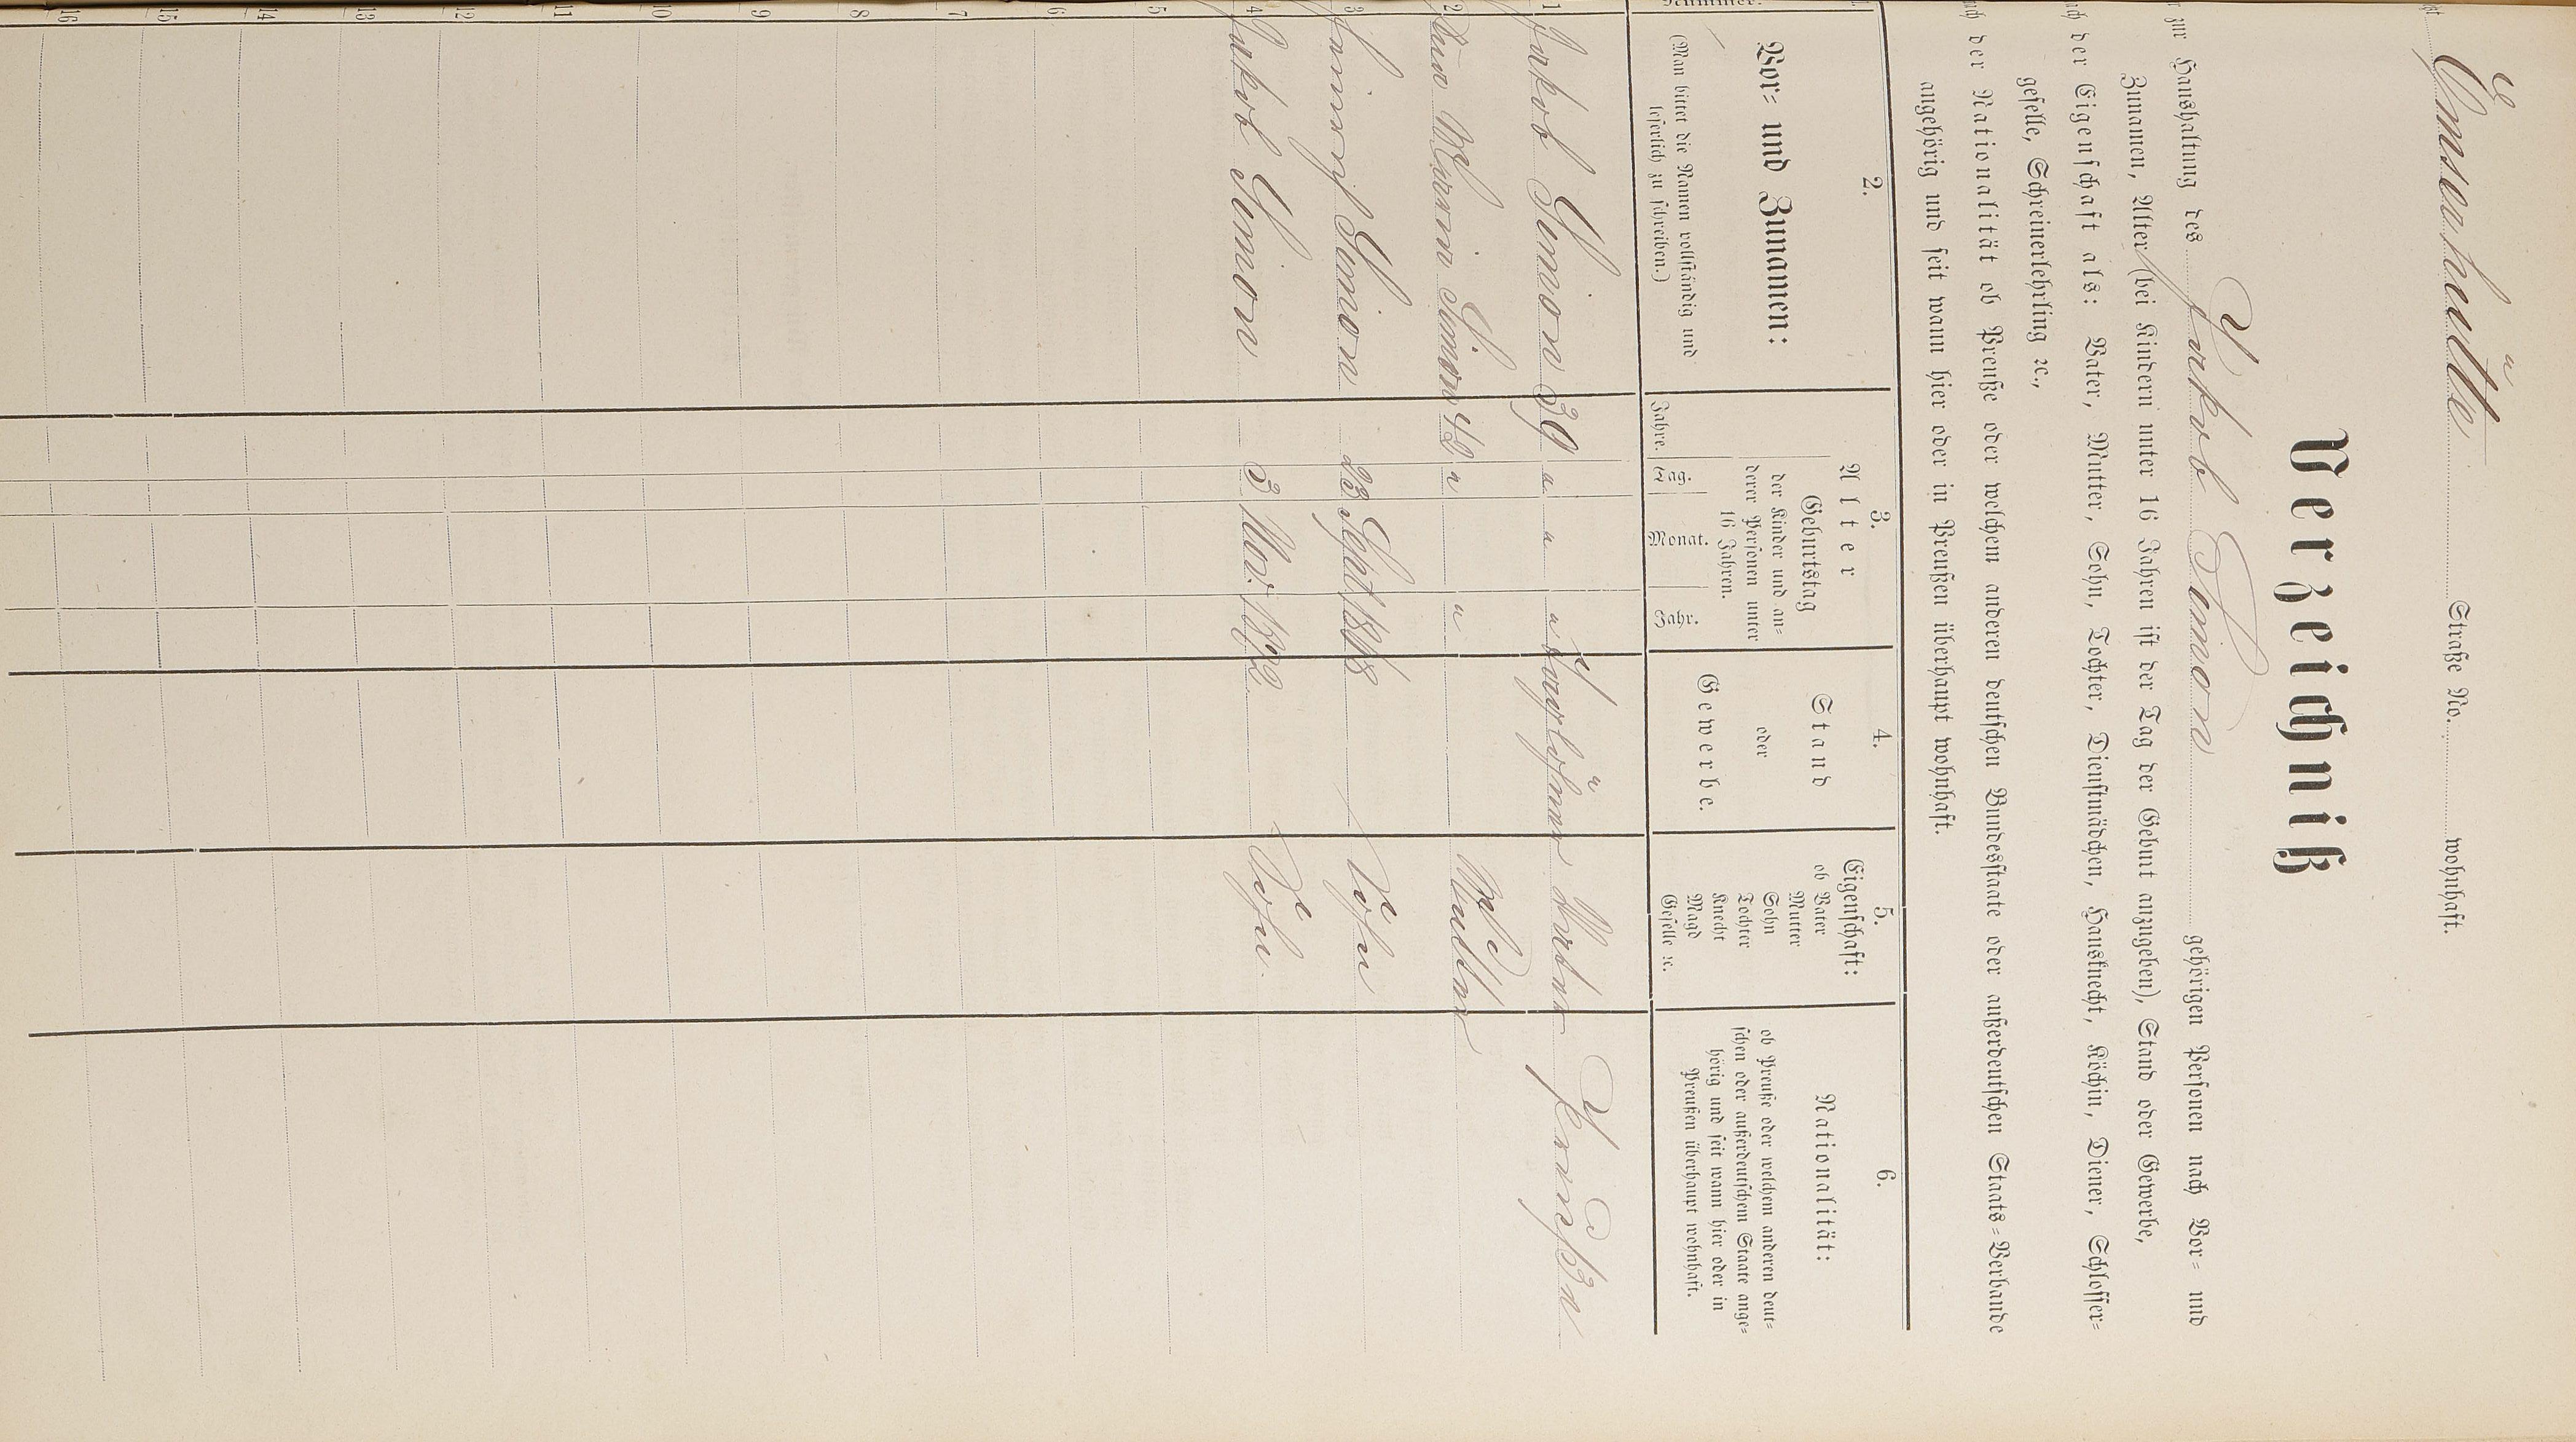 Emserhütte Straße No. wohnhaft.
Verzeichniß
zur Haushaltung des Jakob Simon gehörigen Personen nach Vor= und
Zunamen, Alter (bei Kindern unter 16 Jahren ist der Tag der Geburt anzugeben), Stand oder Gewerbe,
der Eigenschaft als: Vater, Mutter, Sohn, Tochter, Dienstmädchen, Hausknecht, Köchin, Diener, Schlosser=
geselle, Schreinerlehrling ꝛc.,
der Nationalität ob Preuße oder welchem anderen deutschen Bundesstaate oder außerdeutschen Staats=Verbande
angehörig und seit wann hier oder in Preußen überhaupt wohnhaft.
Nummer.
2.
Vor= und Zunamen:
(Man bittet die Namen vollständig und
leserlich zu schreiben.)
3.
Alter
Geburtstag
der Kinder und an=
derer Personen unter
16 Jahren.
Jahre. Tag. Monat. Jahr.
4.
Stand
oder
Gewerbe.
5.
Eigenschaft:
ob Vater
Mutter
Sohn
Tochter
Knecht
Magd
Geselle ꝛc.
6.
Nationalität:
ob Preuße oder welchem anderen deut=
schen oder außerdeutschem Staate ange=
hörig und seit wann hier oder in
Preußen überhaupt wohnhaft.
1 Jakob Simon 39 " " " Tagelöhner Vater Preuße
2 Simon 42 " " Mutter
3 Heinrich Simon 23 Sept 1868 Sohn
4 Jakob Simon 3 Nov. 1872 Sohn.
5
6
7
8
9
10
11
12
13
14
15
16